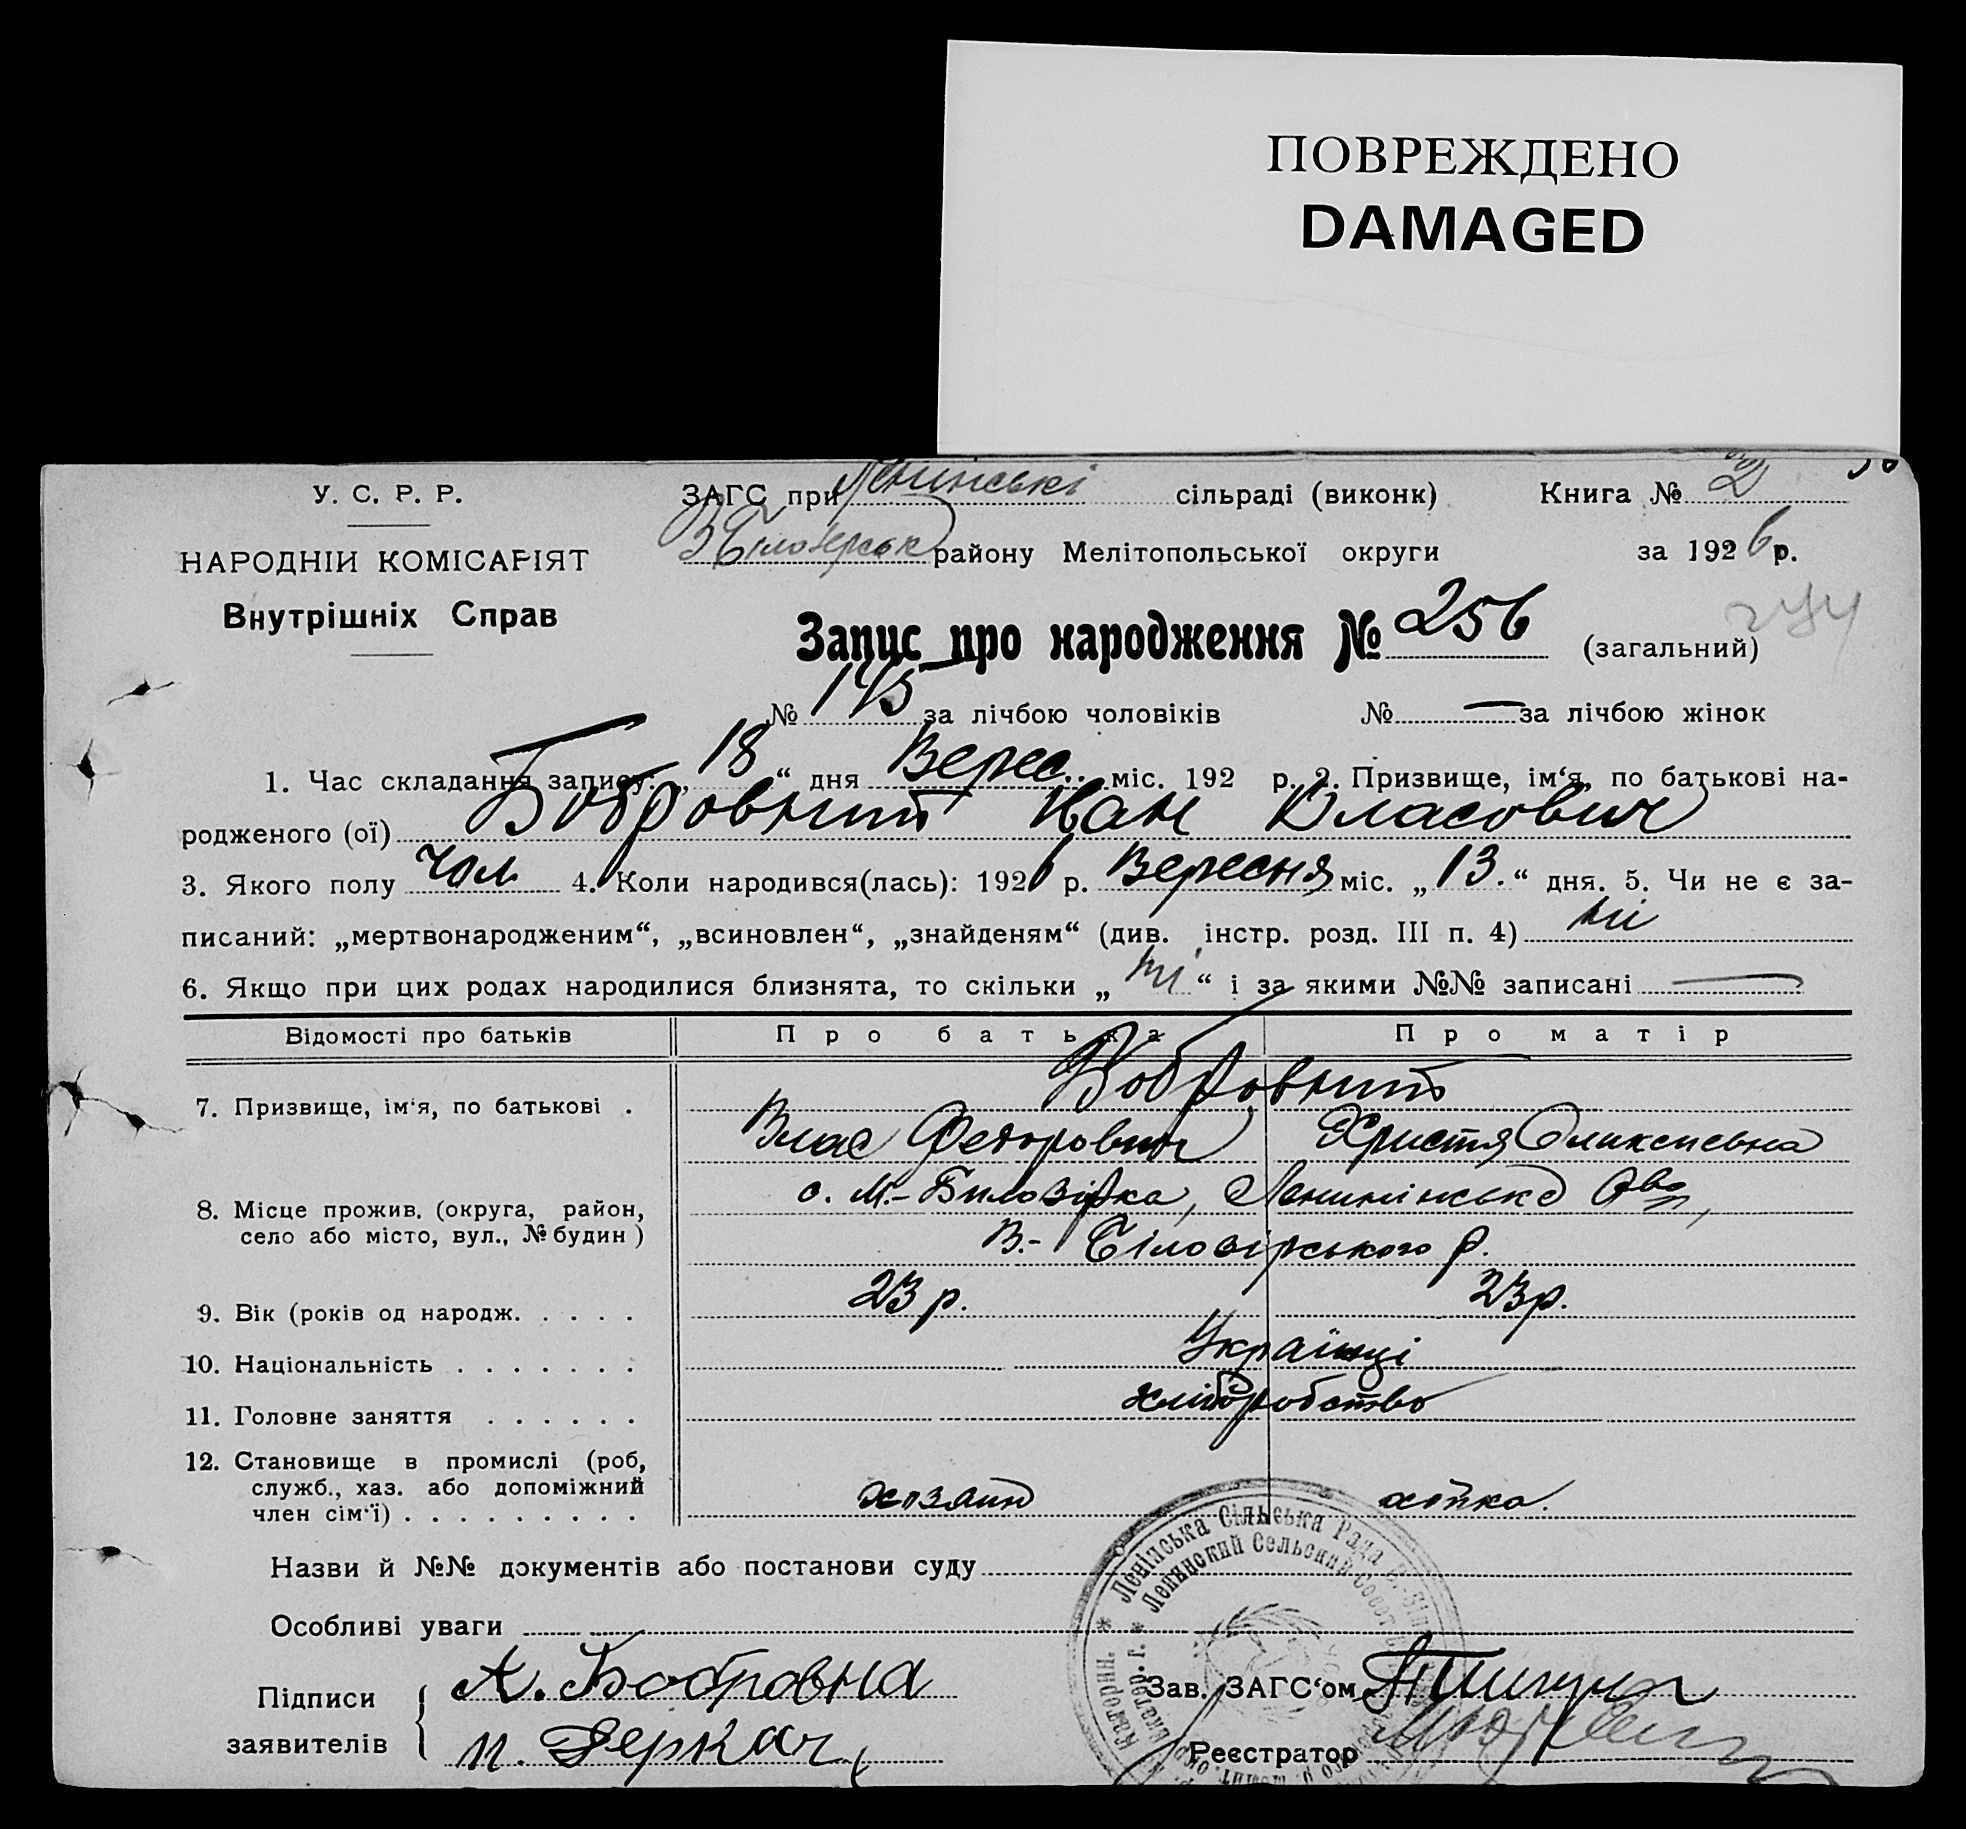 ПОВРЕЖДЕНО
DAMAGED
У. С. Р. Р.
ЗАГС при Ленинські сільраді (виконк) Книга № 2
В Білозерськ району Мелітопольської округи за 1926 р.
НАРОДНІЙ КОМІСАРІЯТ
Внутрішніх Справ
Запис про народження № 256 (загальний)
№ за лічбою чоловіків № — за лічбою жінок
1. Час складання запису: „ 18 “ дня Верес. міс. 192 р. 2. Призвище, ім‘я, по батькові на-
родженого (ої) Бобровний Иван Власович
3. Якого полу чол 4. Коли народився(лась): 1926 р. Вересня міс. „ 13. “ дня. 5. Чи не є за-
писаний: „мертвонародженим“, „всиновлен“, „знайденям“ (див. інстр. розд. III п. 4) ні
6. Якщо при цих родах народилися близнята, то скільки „ ні “ і за якими №№ записані —
Відомості про батьків Про батька Про матір
7. Призвище, ім‘я, по батькові . Бобровний
Влас Федорович Христя Оликсиевна
8. Місце прожив. (округа, район, с. М.-Билозірка,
село або місто, вул., № будин) В.- Білозірського р.
9. Вік (років од народж. . . . . 23 р. 23 р.
10. Національність . . . . . . . Українці
11. Головне заняття . . . . . . хліборобство
12. Становище в промислі (роб,
служб., хаз. або допоміжний хозяин
член сім‘ї) . . . . . . . . .
Назви й №№ документів або постанови суду
Особливі уваги
Ленінська Сільська Рада
Ленинский Сельский Совет
Підписи Х. Бобровна Зав. ЗАГС‘ом
заявителів П. Деркач Реєстратор